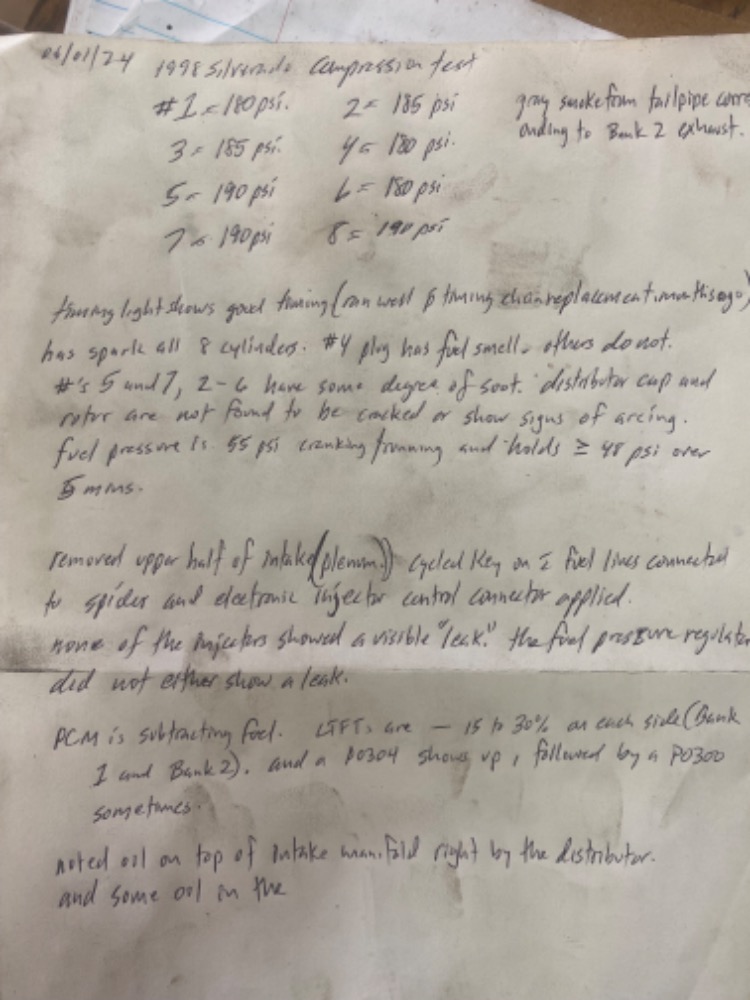 06/01/24 1998 Silverado Compression test
#1 = 180 psi. 2 = 185 psi
gray smoke from tailpipe corre
onding to Bank 2 exhaust.
3 = 185 psi. 4 = 180 psi.
5 = 190 psi 6 = 180 psi
7 = 190 psi 8 = 190 psi
timing light shows good timing (ran well p timing chain replacement, months ago)
has spark all 8 cylinders. #4 plug has fuel smell. others do not.
#'s 5 and 7, 2-6 have some degree of soot. distributor cap and
rotor are not found to be cracked or show signs of arcing.
fuel pressure is 55 psi cranking/running and holds ≥ 48 psi over
5 mins.
removed upper half of intake (plenum.)) cycled key on c̄ fuel lines connected
to spider and electronic injector control connector applied.
none of the injectors showed a visible "leak." the fuel pressure regulator
did not either show a leak.
PCM is subtracting fuel. LTFTs are - 15 to 30% on each side (Bank
1 and Bank 2). and a P0304 shows up, followed by a P0300
sometimes.
noted oil on top of intake manifold right by the distributor.
and some oil in the